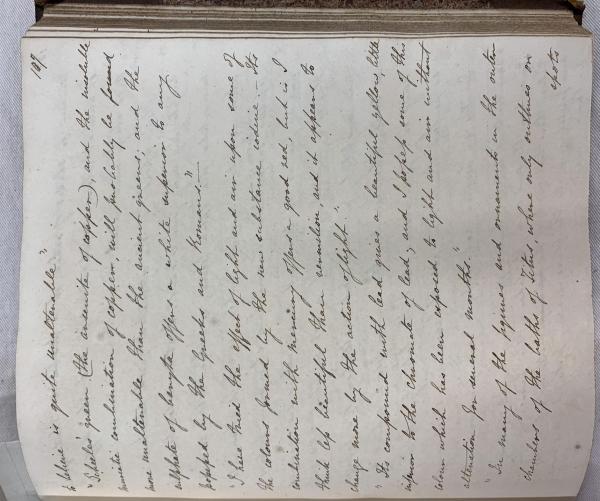 107.
to believe is quite unalterable."
"Scheele's green (the arsenite of copper), and the insoluble
muriatic combination of copper, will probably be found
more unalterable than the ancient greens, and the
sulphate of baryta offers a white superior to any
possessed by the Greeks and Romans."—
"I have tried the effect of light and air upon some of
the colours formed by the new substance iodine — Its
combination with mercury offers a good red, but is I
think less beautiful than vermilion, and it appears to
change more by the action of light."
"Its compound with lead gives a beautiful yellow, little
inferior to the chromate of lead, and I possess some of this
colour which has been exposed to light and air without
alteration for several months."
"In many of the figures and ornaments in the outer
chambers of the baths of Titus, where only outlines or
spots